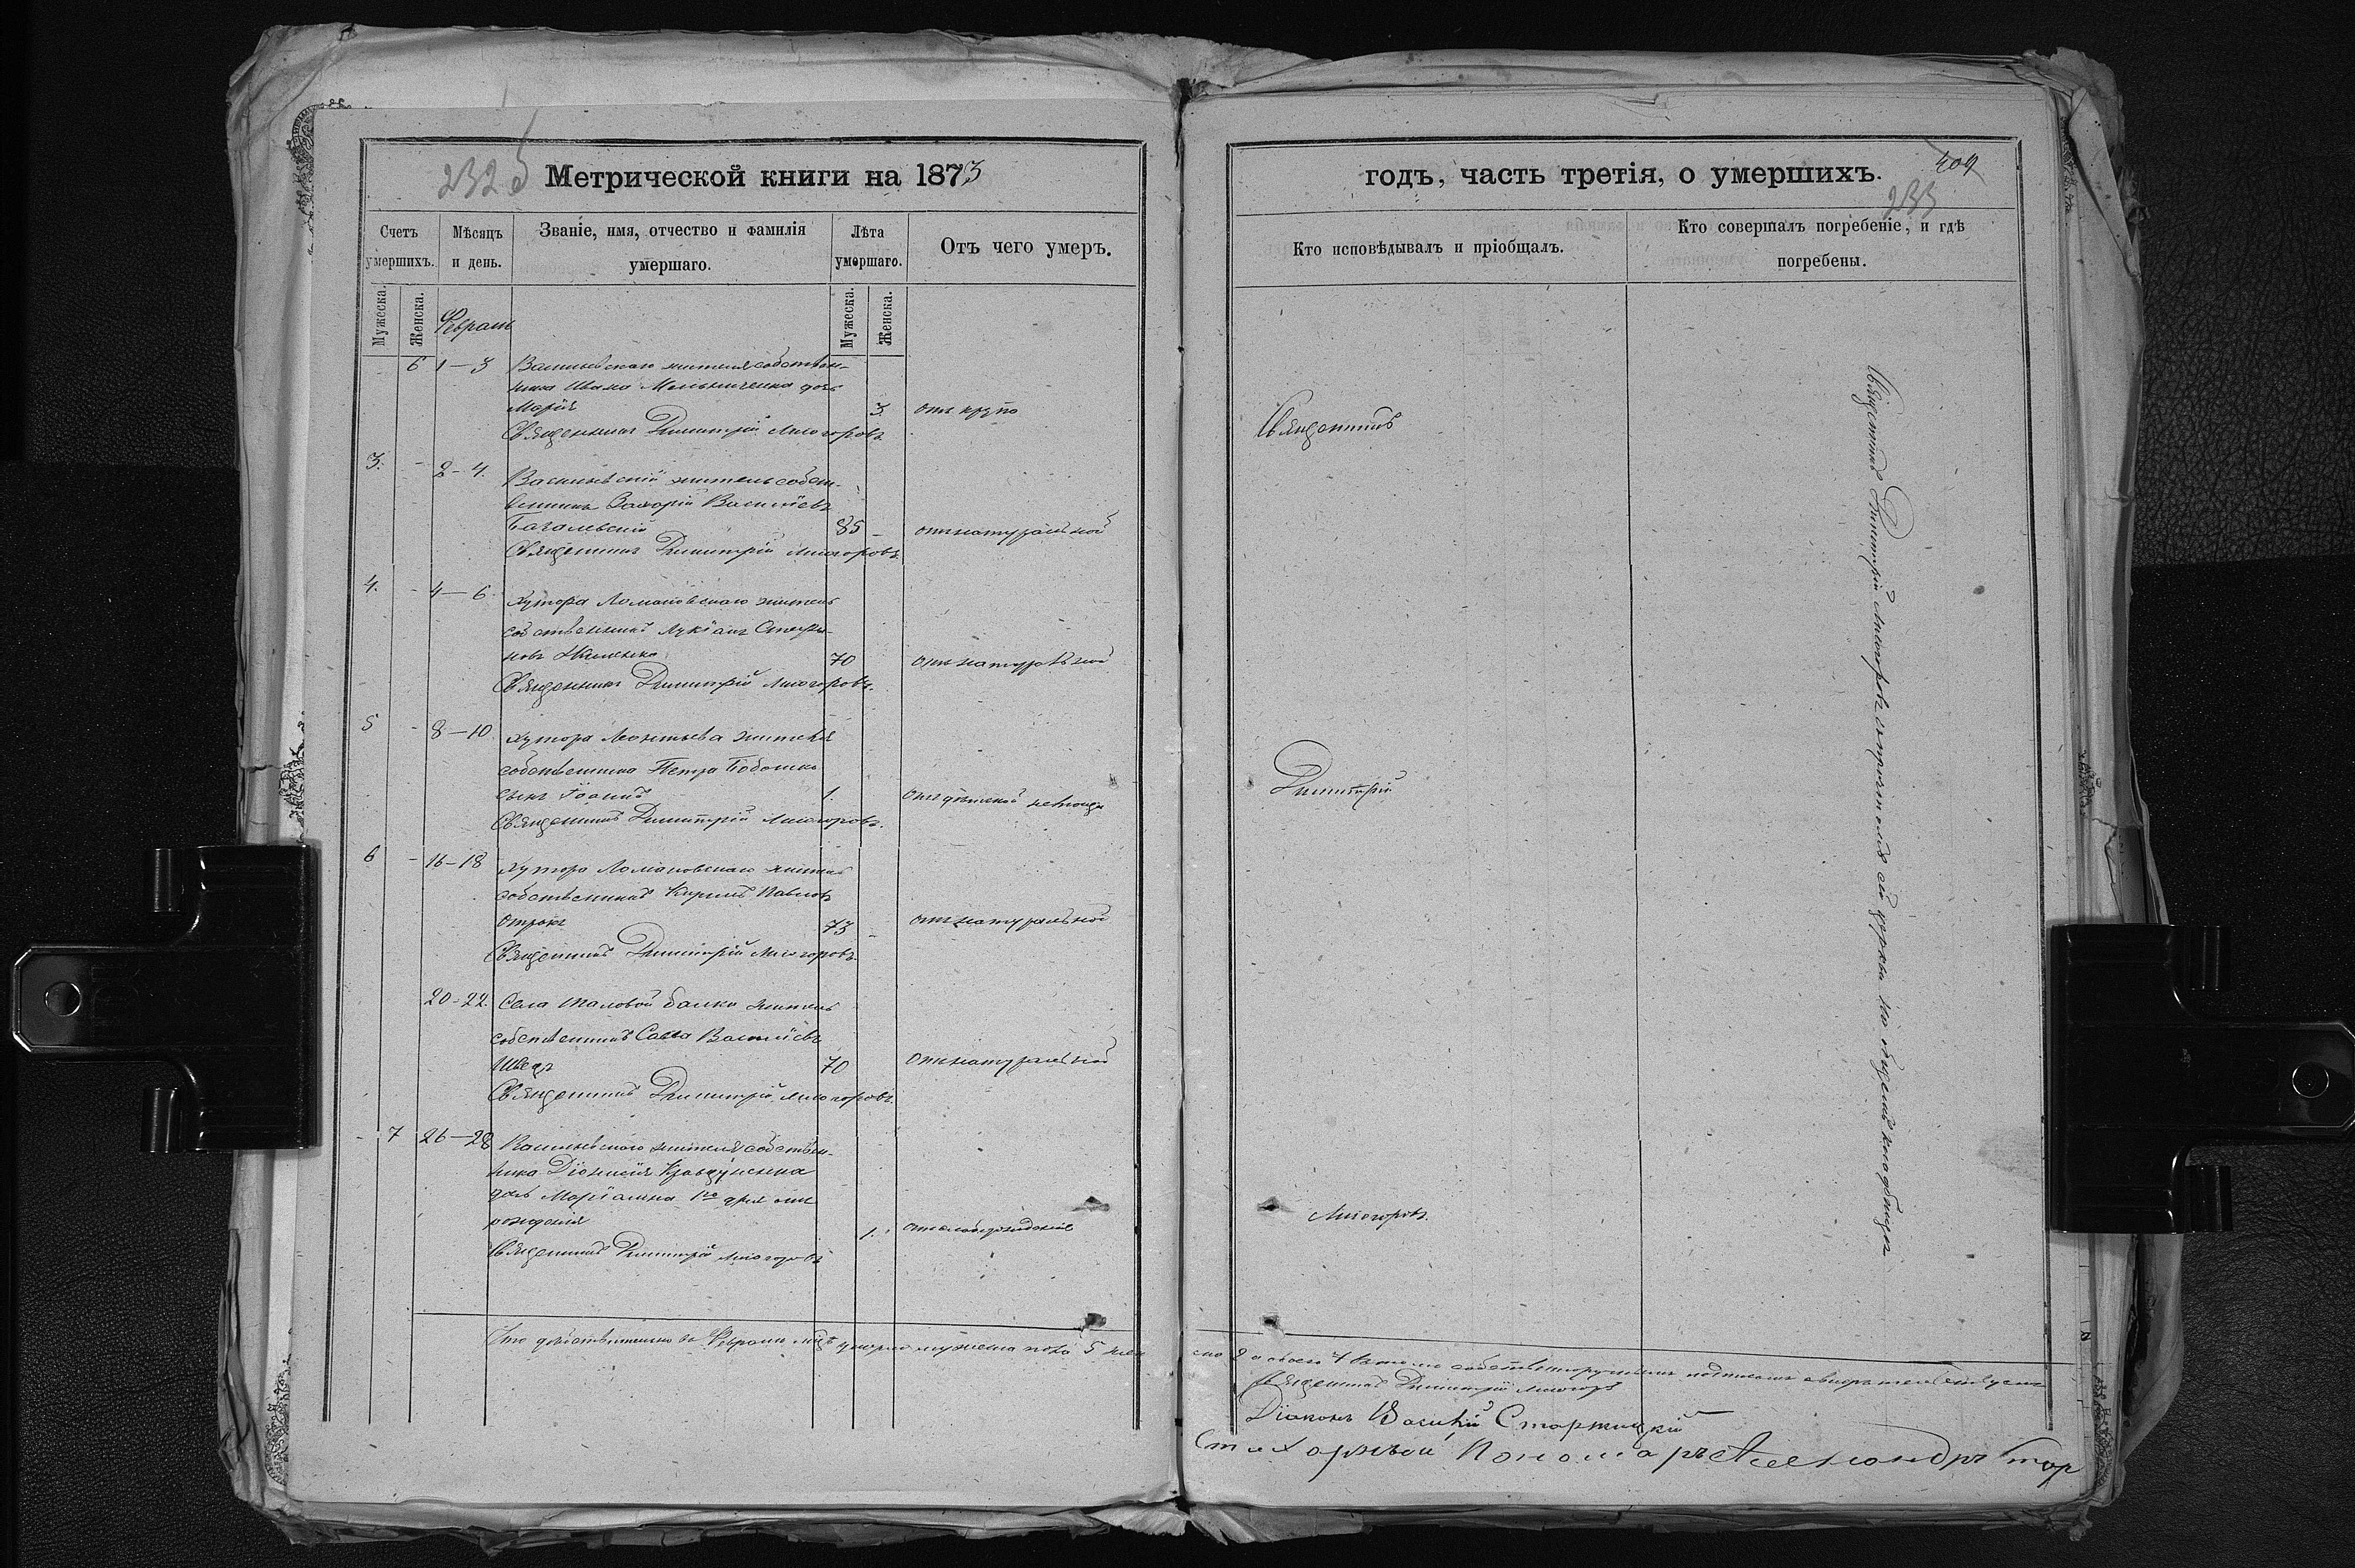 232 б
Метрической книги на 1873
Счетъ умершихъ.
Мѣсяцъ и день.
Званіе, имя, отчество и фамилія умершаго.
Лѣта умершаго.
Отъ чего умеръ.
Мужеска.
Женска.
Мужеска.
Женска.
Февраль
6 1—3 Васильевскаго жителя собствен-
ника Ивана Мельниченка дочь
Марія 3 отъ крупа
Священникъ Димитрій Лисогоровъ
3. - 2-4. Васильевскій житель собст-
венникъ Захарій Васильевъ
85 - отъ натуральной
Священникъ Димитрій Лисогоровъ
4. - 4—6. Хутора Ломановскаго житель
собственникъ Лукіанъ
70 отъ натуральной
Священникъ Димитрій Лисогоровъ.
5 - 8—10 Хутора Леонтьева жителя
собственника Петра
сынъ Іоаннъ 1. отъ дѣтской
Священникъ Димитрій Лисогоровъ.
6 - 16—18 Хутора Ломановскаго житель
собственникъ Кириллъ Павловъ
Отрокъ 73 - отъ натуральной
Священникъ Димитрій Лисогоровъ.
20-22. Села Паловой Балки житель
собственникъ Савва Васильевъ
Шведъ 70 отъ натуральной
Священникъ Димитрій Лисогоровъ.
- 7 26—28 Васильевскаго жителя собствен-
ника Діонисія Кравцуненка
дочь Маріанна 1го дня отъ
рожденія
1. отъ слаборожденія
Священникъ Димитрій Лисогоровъ
Что дѣйствительно въ Февралѣ мцѣ умерло мужеска пола 5 жен
годъ, часть третія, о умершихъ.
409
233
Кто исповѣдывалъ и пріобщалъ.
Кто совершалъ погребеніе, и гдѣ погребены.
Священникъ
Димитрій
Лисогоровъ.
Священникъ Димитрій Лисогоровъ съ причтомъ сей церкви на общемъ кладбищѣ
ска 2 а всего 7 въ томъ собственноручнымъ подписомъ
Священникъ Димитрій Лисогоръ
Діаконъ Василій Старжицкій
Стихарный Пономарь Александръ